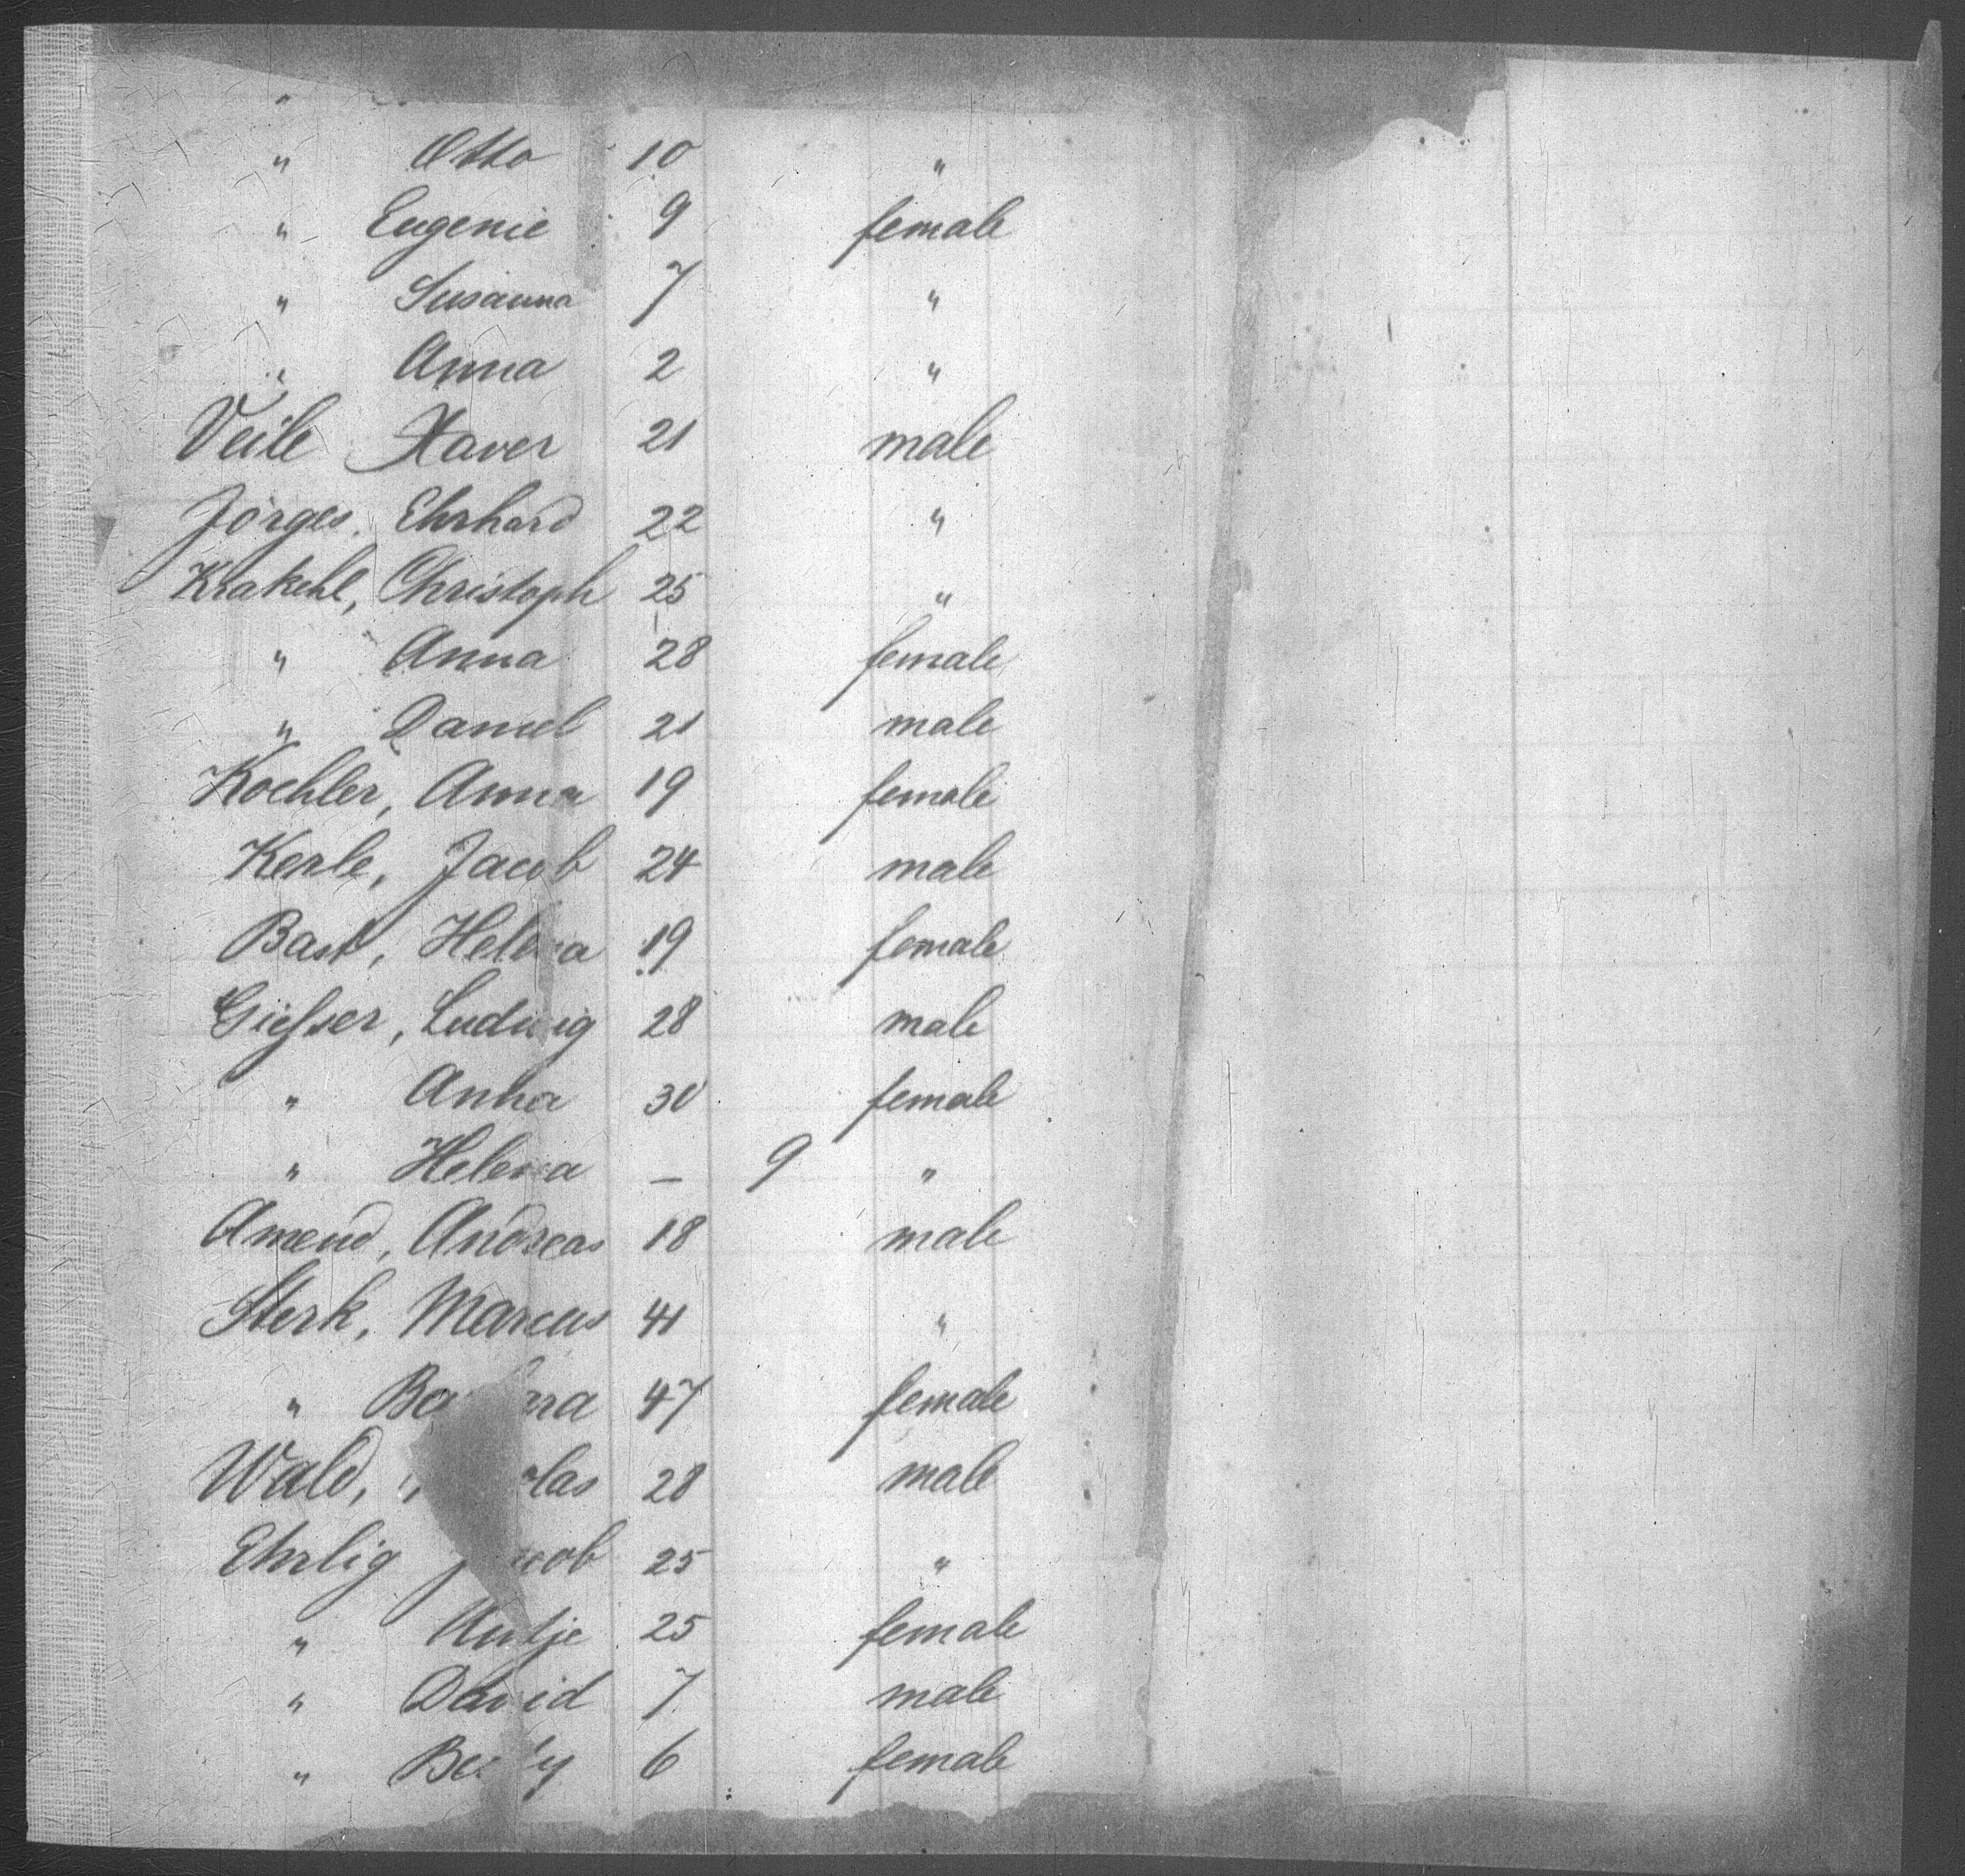 "
" Otto 10 "
" Eugenie 9 female
" Susanna 7 "
" Anna 2 "
Veile Xaver 21 male
Jörges, Ehrhard 22 "
Krakehl, Christoph 25 "
" Anna 28 female
" Daniel 21 male
Koehler, Anna 19 female
Kerle, Jacob 24 male
Bast, Helena 19 female
Giesser, Ludwig 28 male
" Anna 30 female
" Helena — 9 "
Amend, Andreas 18 male
Sterk, Marcus 41 "
" Barbara 47 female
Wald, 28 male
Ehrlig Jacob 25 "
" Antje 25 female
" David 7 male
" 6 female